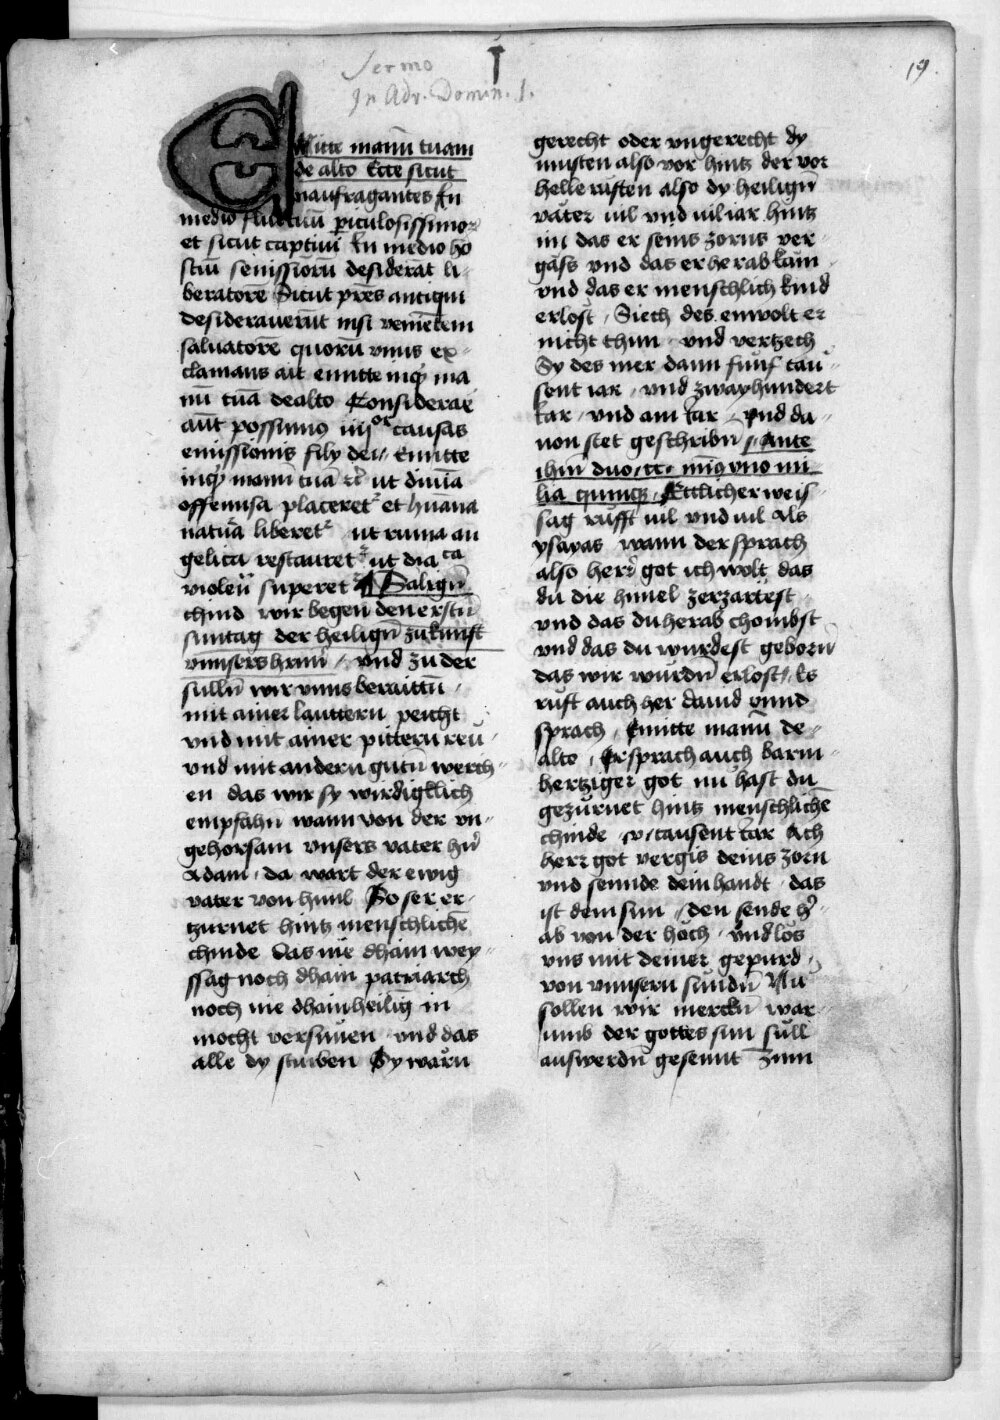 Sermo
In Adv. Domin. 1.
19.
Emitte manū tuam
de alto Ecce sicut
naufragantes In
medio fluctuū periculosissimo
et sicut captiui In medio ho
stiū seuissiorū desiderāt li-
beratorē Sicut prēs antiqui
desiderauerūt nisi veniētem
saluatorē quorū vnus ex-
clamans ait emitte inqͥ ma
nū tuā de alto Considerare
aūt possumꝰ iiijor causas
emissionis filÿ dei Emitte
inqͥ manū tuā ꝛc̄ ut diuīa
offenusa placeretᷣ et huāna
natūa liberetᷣ ut ruina an
gelica restauretᷣ ut dia ca
violeū superetᷣ ¶ Saligū
chind wir begen den erstn̄
suntag der heiligū zukunft
vnnsers hrnn̄ / vnd zu der
sullū wir vnns beraittū
mit ainer lauttern peicht
vnd mit ainer pittern reu-
vnd mit andern gutū werch-
en das wir sy wirdigklich
empfahn wann von der vn-
gehorsam vnsers vater hn̄
Adam da wart der ewig
vater von himl So ser er-
tzurnet hintz menschlichē
chinde das nie dhain wey-
ssag noch dhain patriarch
noch nie dhain heilig in
mocht versuuen vnd das
alle dy sturben Sy warn
gerecht oder vngerecht dy
musten also vor hintz der vor
helle ruften also dy heiligū
väter uil vnd uil iar hintz
im das er seins zorns ver-
gäss vnd das er herab käm
vnd das er menschlich kind
erlost / Siech des enwolt er
nicht thun vnd vertzech
Sy des mer dann funf tau-
sent iar / vnd zwayhundert
Iar / vnd ain Iar / vnd da-
uon stet geschribn̄ / Ante
ihm duo / cc / minꝰ vno mi
lia quinqꝫ / Ettlicher weis-
sag rüfft uil vnd uil Als
ysayas wann der sprach
also herr got ich wolt das
du die himel zerzartest
vnd das du herab chombst
vnd das du wurdest geborn̄
das wir wurdn̄ erlost / Es
ruft auch her dauid vnnd
sprach / Emitte manū de-
alto / Er sprach auch barm-
hertziger got nu hast du
gezürnet hintz menschlichē
chinde / v / tausent Iar Ach
herr got vergis deins zorn
vnd sennde dein handt / das
ist dein sun / den sende h̄-
ab von der höch vnd lös
vns mit deiner gepurd
von vnnsern sundn̄ Nu
sollen wir merckn̄ war-
umb der gottes sun süll
auswerdn̄ gesennt zum